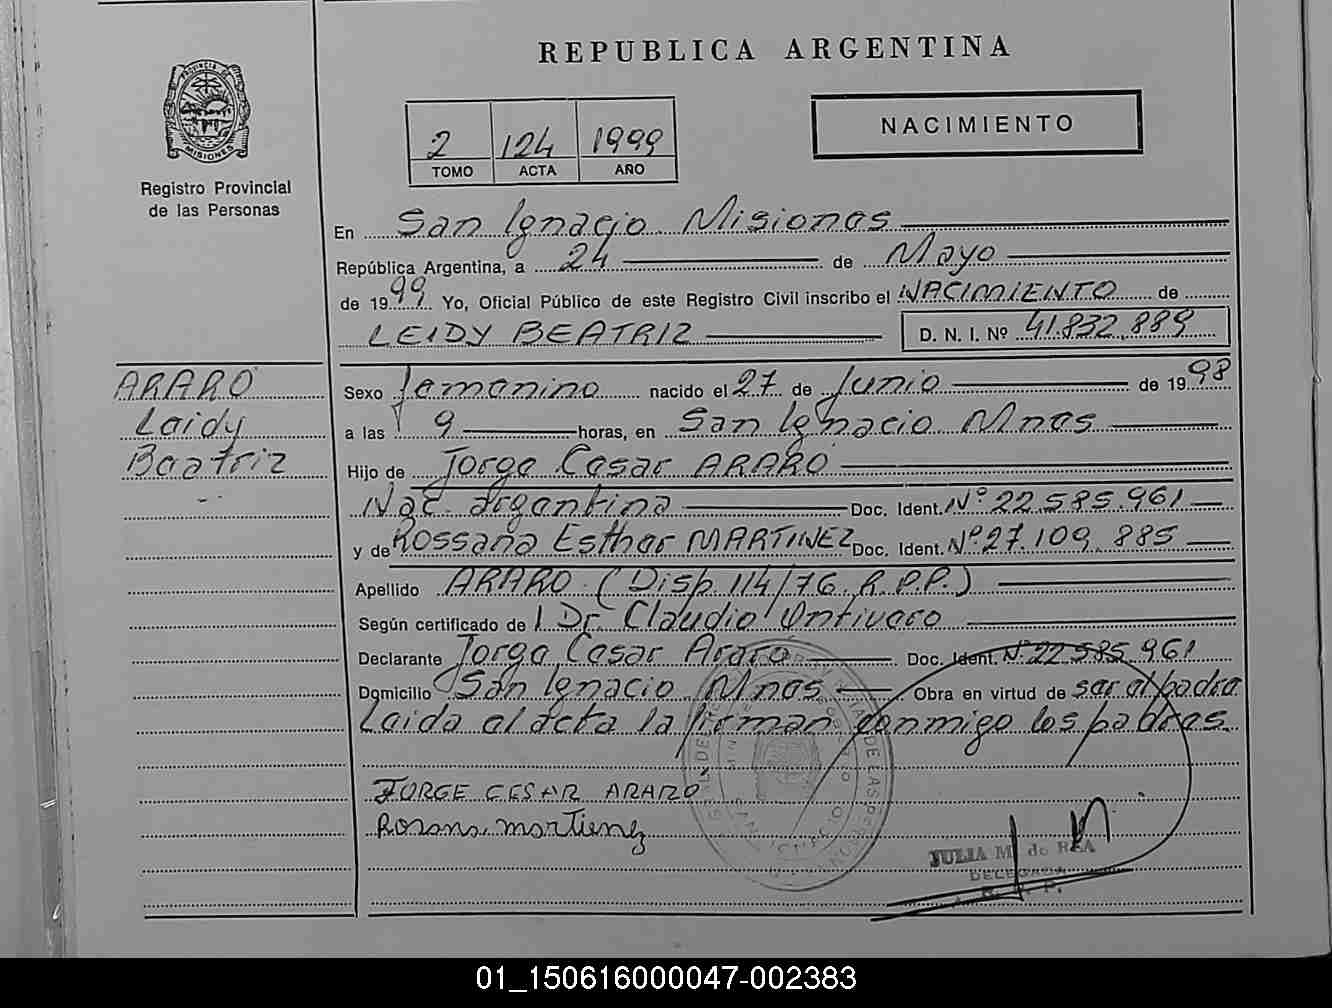 REPUBLICA ARGENTINA
PROVINCIA DE
MISIONES
Registro Provincial
de las Personas
2 124 1999
TOMO ACTA AÑO
NACIMIENTO
En San Ignacio Misiones
República Argentina, a 24 de Mayo
de 1999 Yo, Oficial Público de este Registro Civil inscribo el NACIMIENTO de
LEIDY BEATRIZ D. N. I. Nº 41.832.889
ARARO
Leidy
Beatriz
Sexo femenino nacido el 27 de Junio de 1998
a las 9 horas, en San Ignacio Mnes
Hijo de Jorge Cesar ARARO
Nac. argentina Doc. Ident. Nº 22.585.961
y de Rossana Esther MARTINEZ Doc. Ident. Nº 27.109.885
Apellido ARARO (Disp. 114/76. R.P.P.)
Según certificado de Dr. Claudio Ontivero
Declarante Jorge Cesar Araro Doc. Ident. Nº 22.585.961
Domicilio San Ignacio Mnes Obra en virtud de ser el padre
Leida el acta la firman conmigo los padres.
JORGE CESAR ARARO
Rosana martienez
JULIA M. de REA
DELEGADA
R. P. P.
01_150616000047-002383